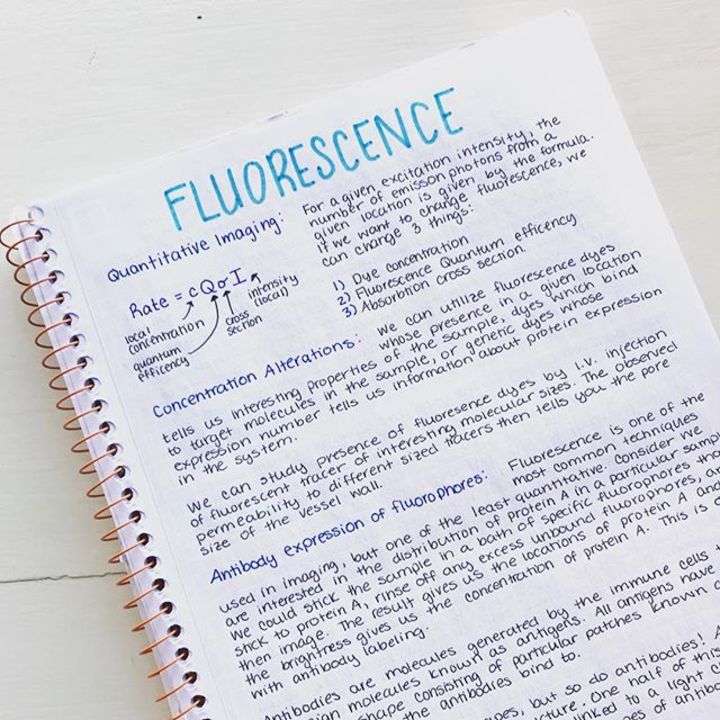 FLUORESCENCE
Quantitative Imaging:
For a given excitation intensity, the
number of emisson photons from a
given location is given by the formula.
If we want to change fluorescence, we
can change 3 things:
1) Dye concentration
2) Fluorescence Quantum efficency
3) Absorbtion cross section.
Rate = c Q σ I
local
concentration
quantum
efficency
cross
section
intensity
(local)
Concentration Alterations: We can utilize fluorescence dyes
whose presence in a given location
tells us interesting properties of the sample, dyes which bind
to target molecules in the sample, or genetic dyes whose
expression number tells us information about protein expression
in the system.
We can study presence of fluoresence dyes by I.V. injection
of fluorescent tracer of interesting molecular sizes. The observed
permeability to different sized tracers then tells you the pore
size of the vessel wall.
Antibody expression of fluorophores: Fluorescence is one of the
most common techniques
used in imaging, but one of the least quantitative. Consider we
are interested in the distribution of protein A in a particular
We could stick the sample in a bath of specific fluorophores
stick to protein A, rinse off any excess unbound fluorophores,
then image. The result gives us the locations of protein A and
the brightness gives us the concentration of protein A. This is
with antibody labeling.
Antibodies are molecules generated by the immune cells
molecules known as antigens. All antigens have
shape consisting of particular patches known
the antibodies bind to.
but so do antibodies!
One half of this
linked to a light
of